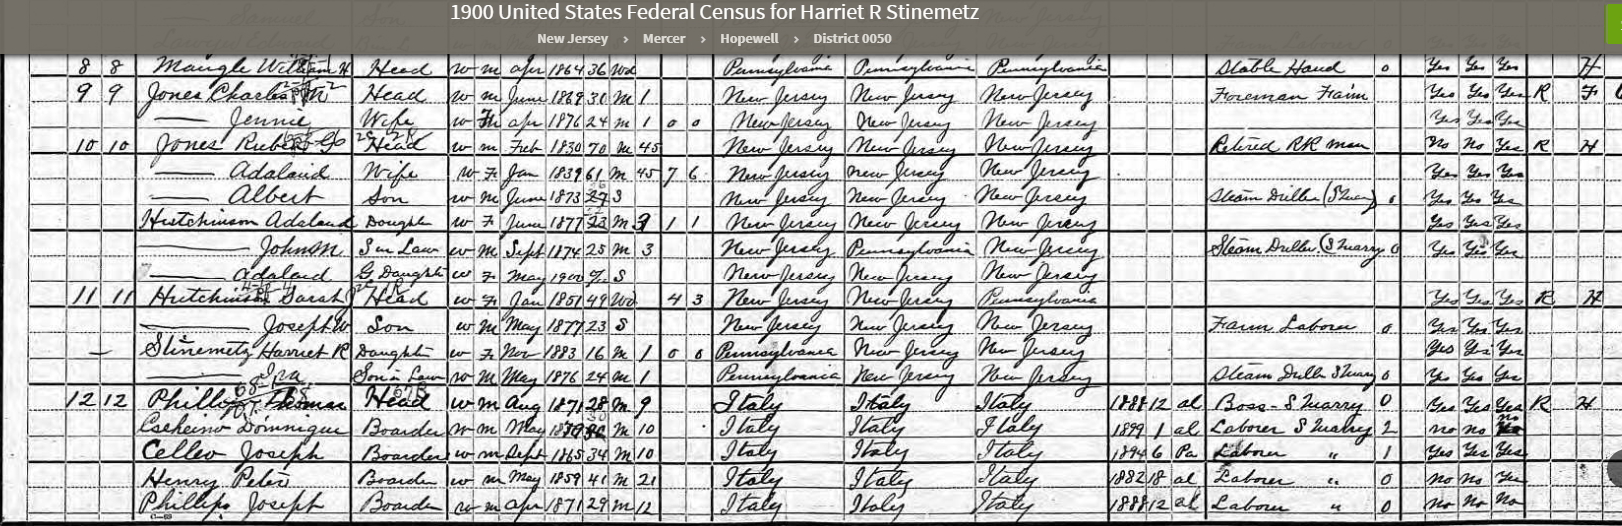 1900 United States Federal Census for Harriet R Stinemetz
New Jersey › Mercer › Hopewell › District 0050
Samuel Son
8 8 Mangle William H Head w m apr 1864 36 Wd Pennsylvania Pennsylvania Pennsylvania Stable Hand 0 Yes Yes Yes H
9 9 Jones Charles Head w m June 1869 30 M 1 New Jersey New Jersey New Jersey Foreman Farm Yes Yes Yes R F
— Jennie Wife w F apr 1876 24 m 1 0 0 New Jersey New Jersey New Jersey Yes Yes Yes
10 10 Jones Head w m Feb 1830 70 M 45 New Jersey New Jersey New Jersey Retired RR man No No Yes R H
— Adalaid Wife w F Jan 1839 61 M 45 7 6 New Jersey New Jersey New Jersey Yes Yes Yes
— Albert Son w m June 1873 S New Jersey New Jersey New Jersey Steam Driller Yes Yes Yes
Hutchinson Adalaid Daughter w F June 1877 23 M 1 1 New Jersey New Jersey New Jersey Yes Yes Yes
— John M S in Law w M Sept 1874 25 M 3 New Jersey Pennsylvania New Jersey Steam Driller (Quarry 0 Yes Yes Yes
— Adalaid G Daughter w F May 1900 S New Jersey New Jersey New Jersey
11 11 Hutchinson Sarah Head w F Jan 1851 49 Wd 4 3 New Jersey New Jersey Pennsylvania Yes Yes Yes R H
— Joseph W Son w M May 1877 23 S New Jersey New Jersey New Jersey Farm Laborer 0 Yes Yes Yes
— Stinemetz Harriet R Daughter w F Nov 1883 16 M 1 0 0 Pennsylvania New Jersey New Jersey Yes Yes Yes
— Ira Son in Law w M May 1876 24 M 1 Pennsylvania New Jersey New Jersey Steam Driller Quarry 0 Yes Yes Yes
12 12 Thomas Head w m Aug 1871 28 M 9 Italy Italy Italy 1888 12 al Boss - Quarry 0 Yes Yes Yes R H
Dominique Boarder w m May M 10 Italy Italy Italy 1899 1 al Laborer Quarry 2 no no
Celleo Joseph Boarder w m Sept 1865 34 M 10 Italy Italy Italy 1894 6 Pa Laborer " 1 Yes Yes Yes
Henry Peter Boarder w m May 1859 41 M 21 Italy Italy Italy 1882 18 al Laborer " 0 no no Yes
Phillips Joseph Boarder w m apr 1871 29 M 12 Italy Italy Italy 1888 12 al Laborer " 0 no No No